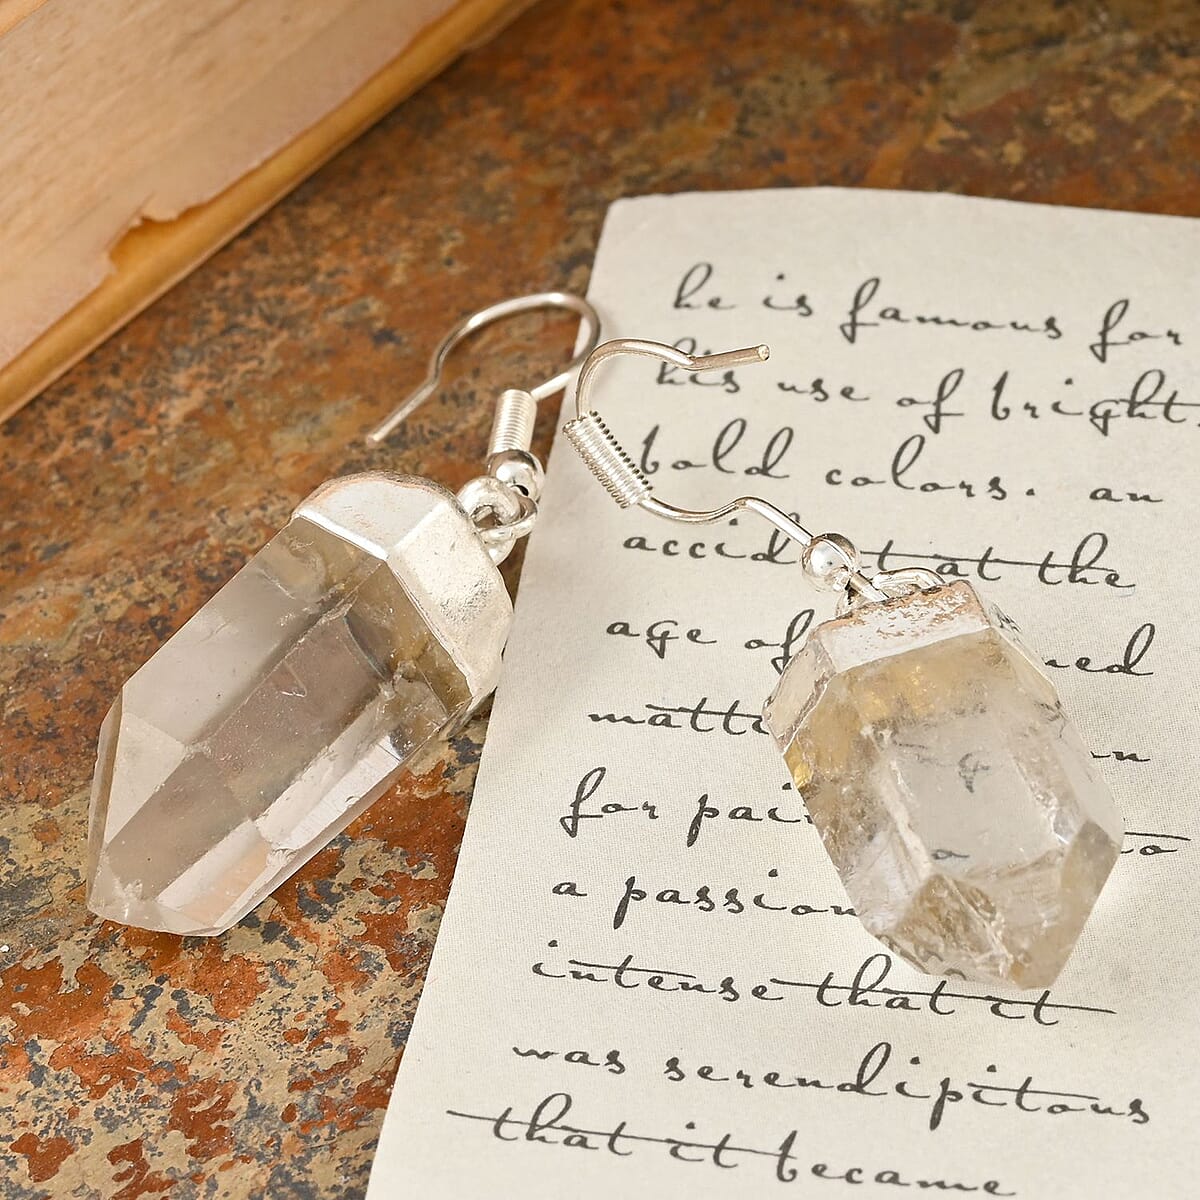 he is famous for
his use of bright
bold colors. an
at the
age of
for
a passion
intense that it
was serendipitous
that it became